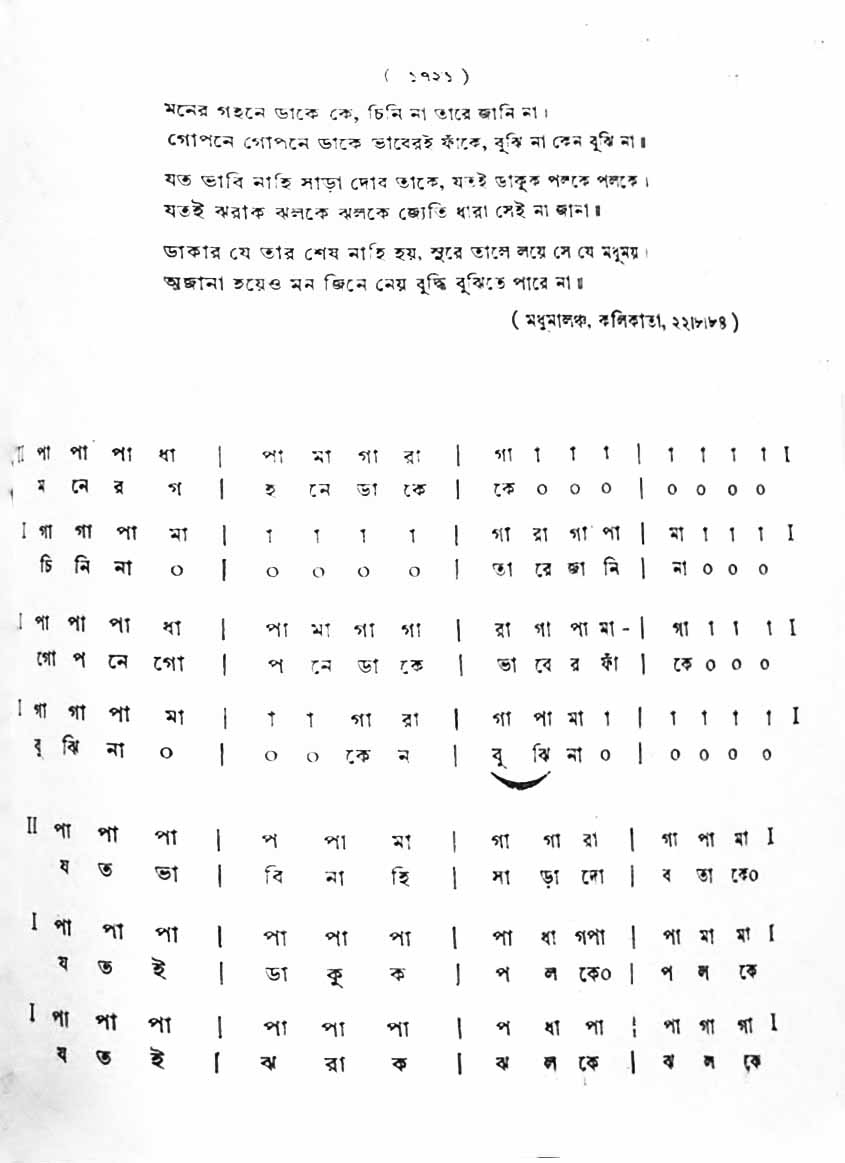 ( ১৭২১ )
মনের গহনে ডাকে কে, চিনি না তারে জানি না।
গোপনে গোপনে ডাকে ভাবেরই ফাঁকে, বুঝি না কেন বুঝি না॥
যত ভাবি নাহি সাড়া দোব তাকে, যতই ডাকুক পলকে পলকে।
যতই ঝরাক ঝলকে ঝলকে জ্যোতি ধারা সেই না জানা॥
ডাকার যে তার শেষ নাহি হয়, সুরে তালে লয়ে সে যে মধুময়।
অজানা হয়েও মন জিনে নেয় বুদ্ধি বুঝিতে পারে না॥
( মধুমালঞ্চ, কলিকাতা, ২২।৮।৮৪ )
II পা পা পা ধা | পা মা গা রা | গা া া া | া া া া I
ম নে র গ | হ নে ডা কে | কে ০ ০ ০ | ০ ০ ০ ০
I গা গা পা মা | া া া া | গা রা গা পা | মা া া া I
চি নি না ০ | ০ ০ ০ ০ | তা রে জা নি | না ০ ০ ০
I পা পা পা ধা | পা মা গা গা | রা গা পা মা - | গা া া া I
গো প নে গো | প নে ডা কে | ভা বে র ফাঁ | কে ০ ০ ০
I গা গা পা মা | া া গা রা | গা পা মা া | া া া া I
বু ঝি না ০ | ০ ০ কে ন | বু ঝি না ০ | ০ ০ ০ ০
II পা পা পা | প পা মা | গা গা রা | গা পা মা I
য ত ভা | বি না হি | সা ড়া দো | ব তা কে০
I পা পা পা | পা পা পা | পা ধা গপা | পা মা মা I
য ত ই | ডা কু ক | প ল কে০ | প ল কে
I পা পা পা | পা পা পা | প ধা পা | পা গা গা I
য ত ই | ঝ রা ক | ঝ ল কে | ঝ ল কে